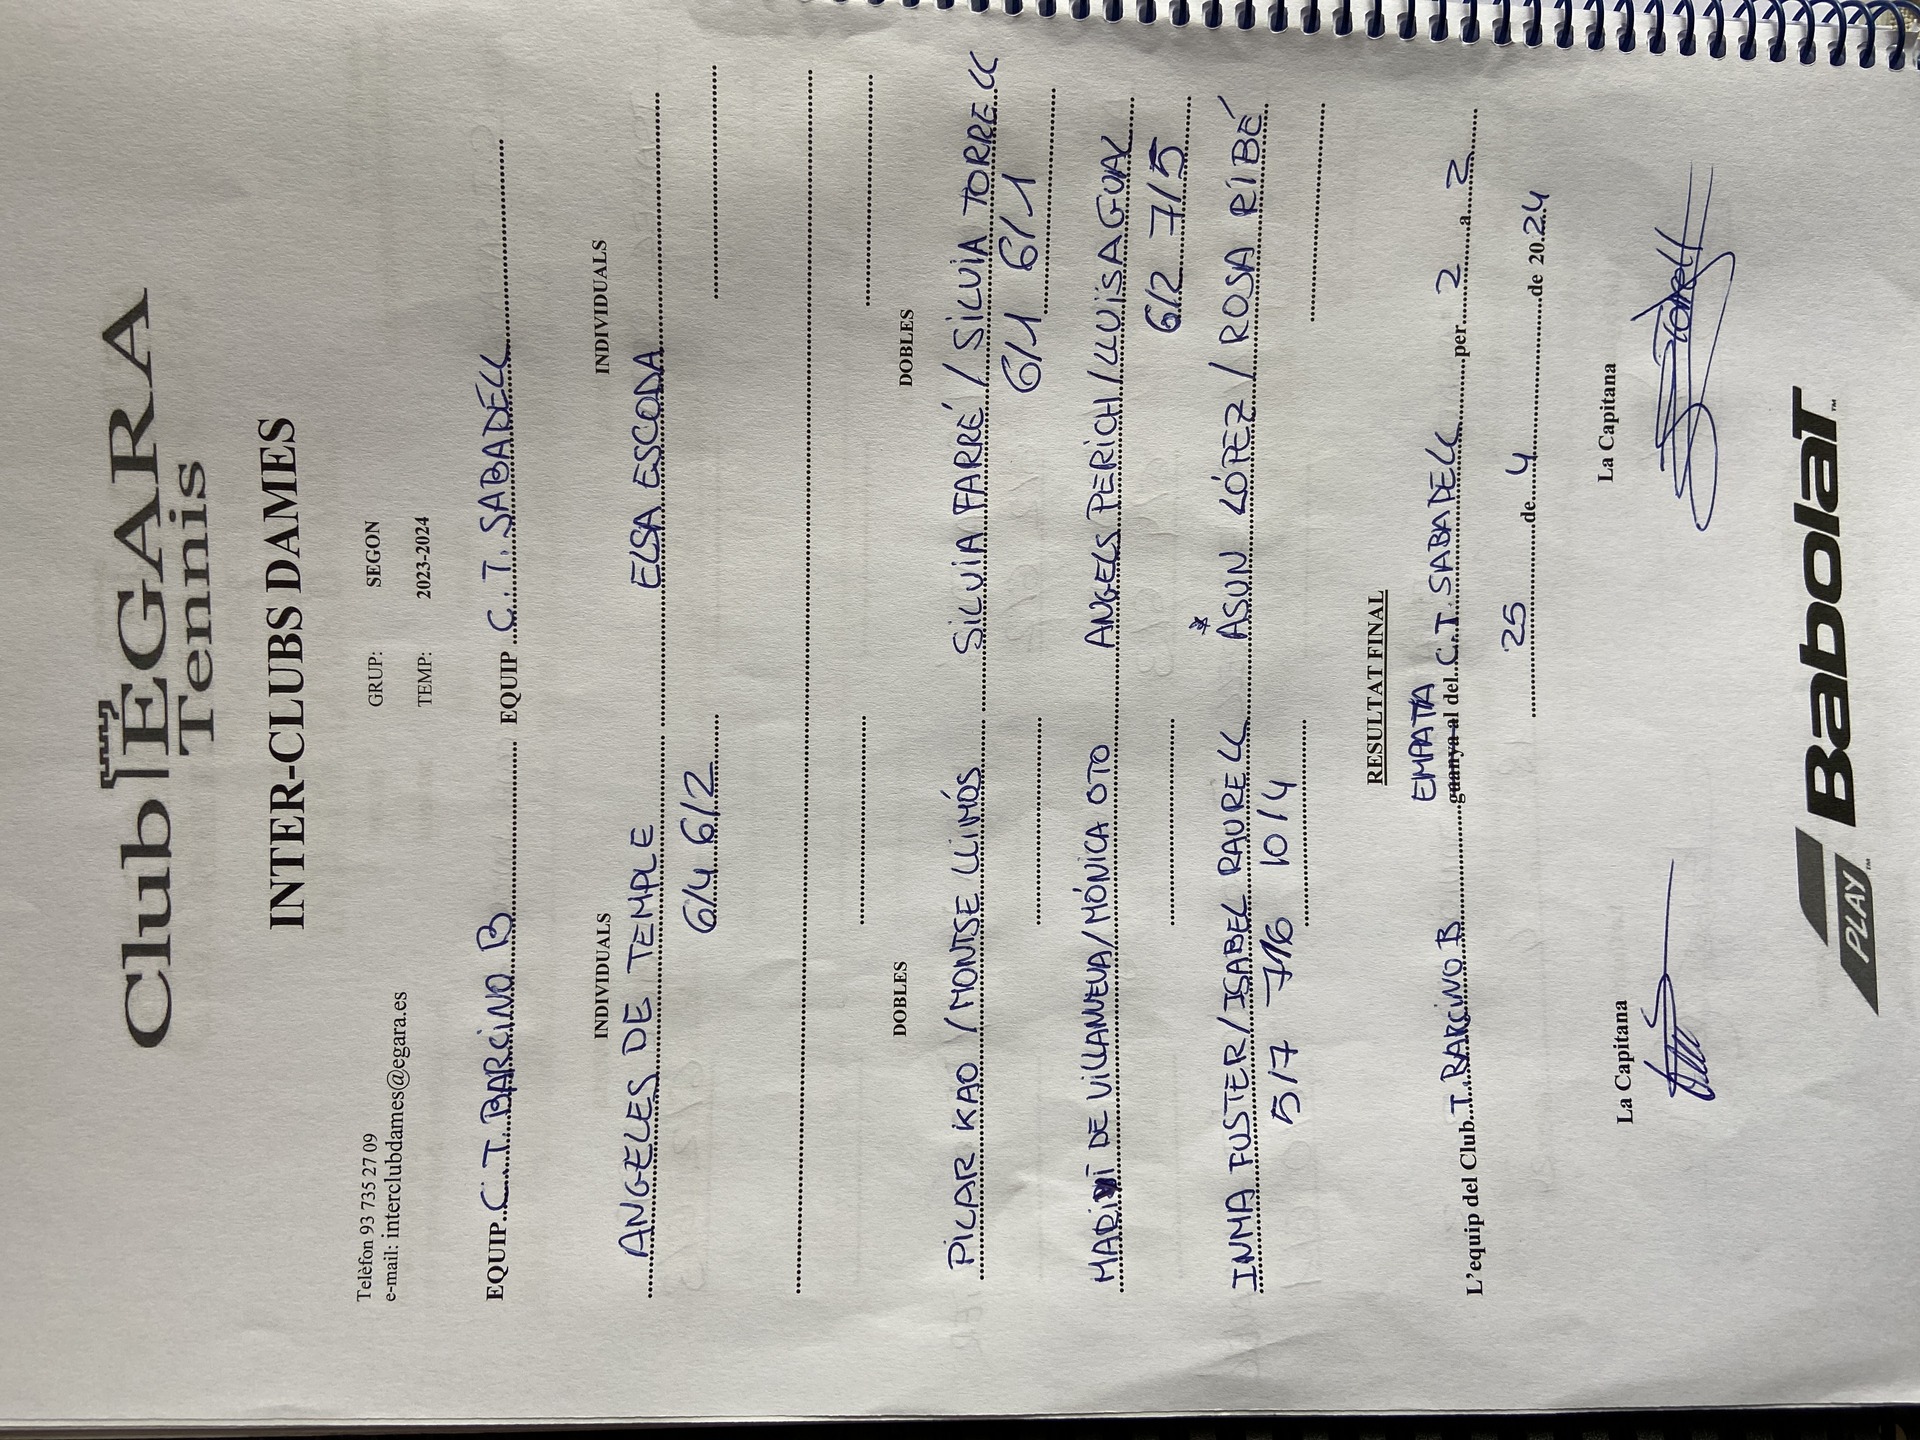 Club EGARA
Tennis
INTER-CLUBS DAMES
Telèfon 93 735 27 09 GRUP: SEGON
e-mail: interclubdames@egara.es TEMP: 2023-2024
EQUIP C.T. BARCINO B EQUIP C.T. SABADELL
INDIVIDUALS INDIVIDUALS
ANGELES DE TEMPLE ELSA ESCODA
6/4 6/2
DOBLES DOBLES
PILAR KAO / MONTSE LLIMÓS SILVIA FARRÉ / SILVIA TORRELL
6/1 6/1
DE VILLANUEVA / MÓNICA OTO ANGELS PERICH / LLUÏSA GUAL
6/2 7/5
INMA FUSTER / ISABEL RAURELL * ASUN LÓPEZ / ROSA RIBÉ
5/7 7/6 10/4
RESULTAT FINAL
EMPATA
L'equip del Club T. BARCINO B guanya al del C.T. SABADELL per 2 a 2
25 de 4 de 2024
La Capitana La Capitana
PLAY Babolat